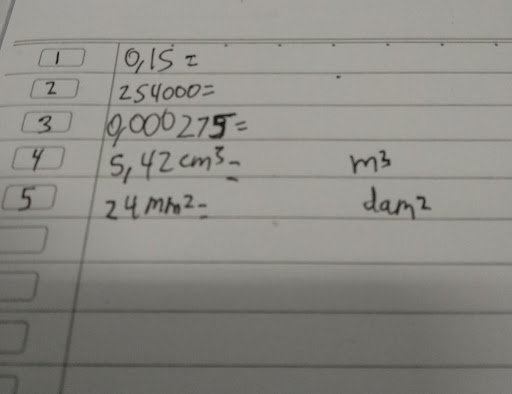 1 0,15 =
2 254000=
3 0,000275=
4 5,42 cm³= m³
5 24 mm²= dam²